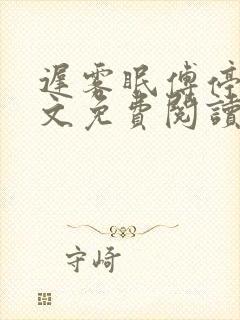 遲雾眠傅停
文免費閱讀
守崎